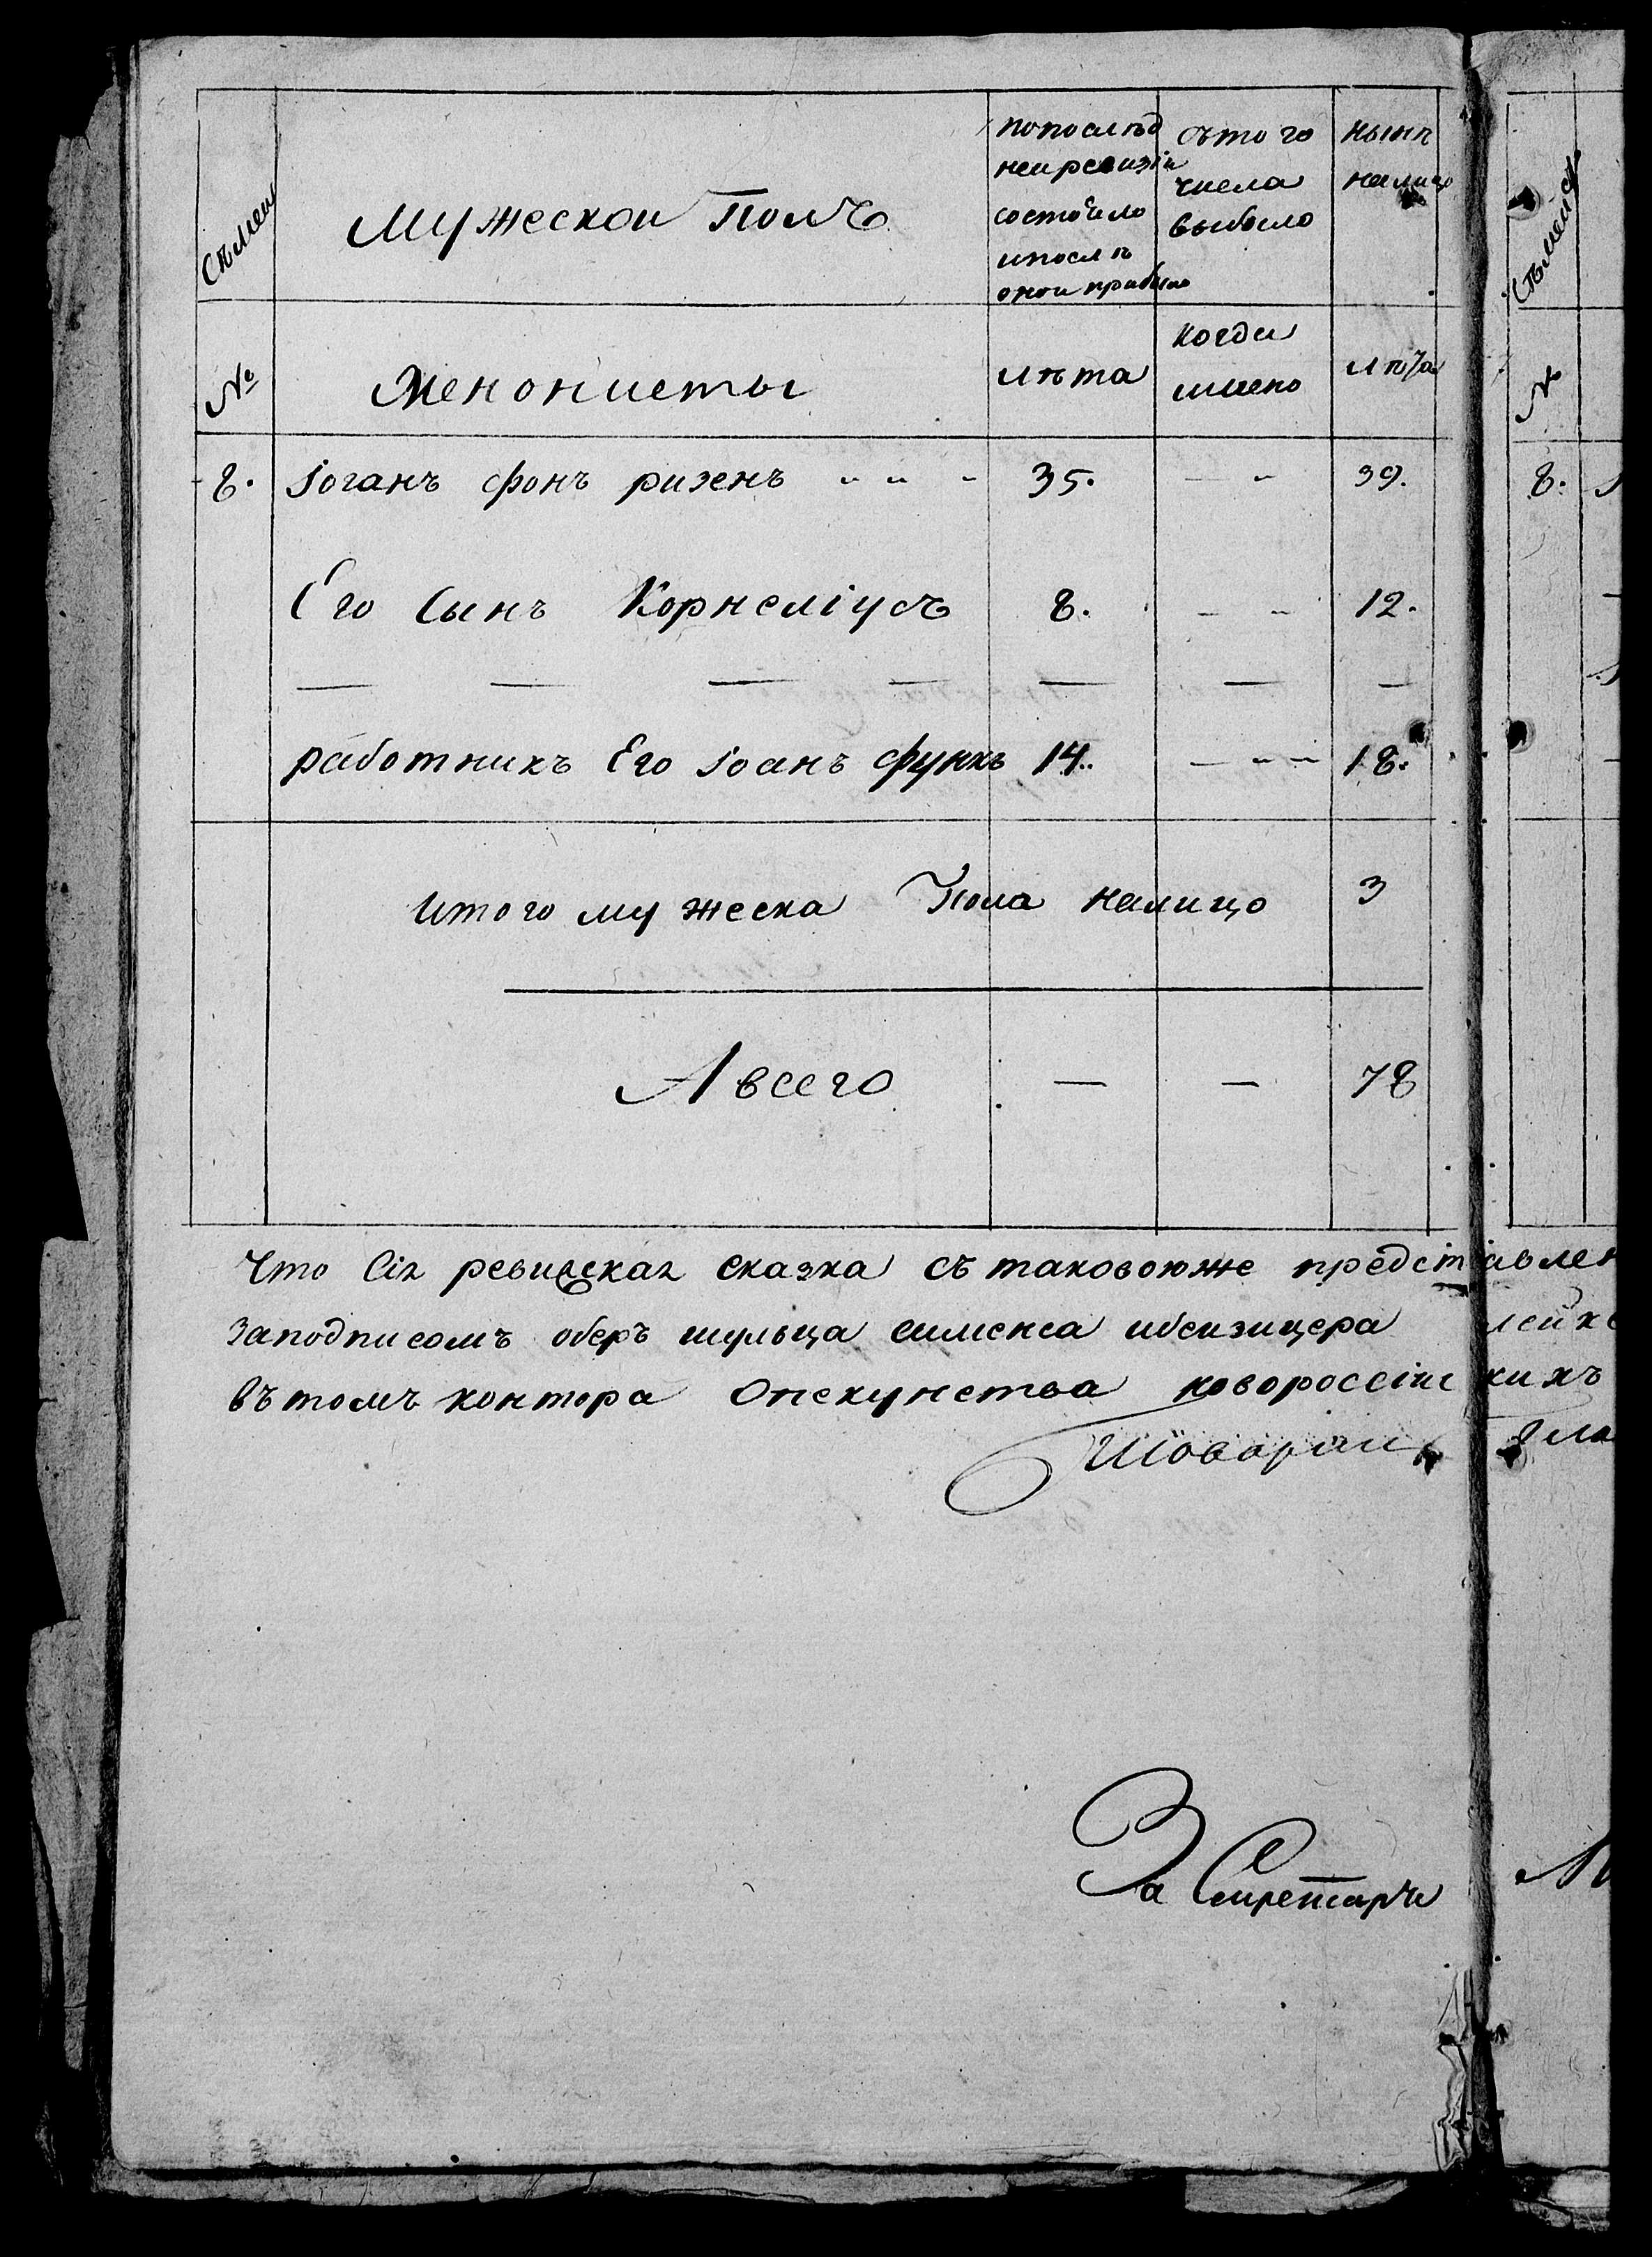 Съмей
мужескои полъ
попослѣд
неиревизіи
состоѣло
ипослѣ
онои прибыло
сътого
числа
выбыло
нынѣ
налицо
Съмейст
№
Менонисты
лѣта
когда
имено
лѣта
№
8. Іоганъ фонъ ризенъ „ „ „ 35. – „ 39. 8.
Его Сынъ Корнеліусъ 8. – „ 12.
— — — — — — —
работникъ Его Іоанъ функъ 14. – „ – 18.
итого мужеска Пола налицо 3
Авсего — — 78
Что Сіѧ ревизскаѧ сказка сътаковоюже представлен
Заподписомъ оберъ шульца сименса ибеизицера лейке
вътомъ контора Опекунства новороссійскихъ
За Сикретарѧ